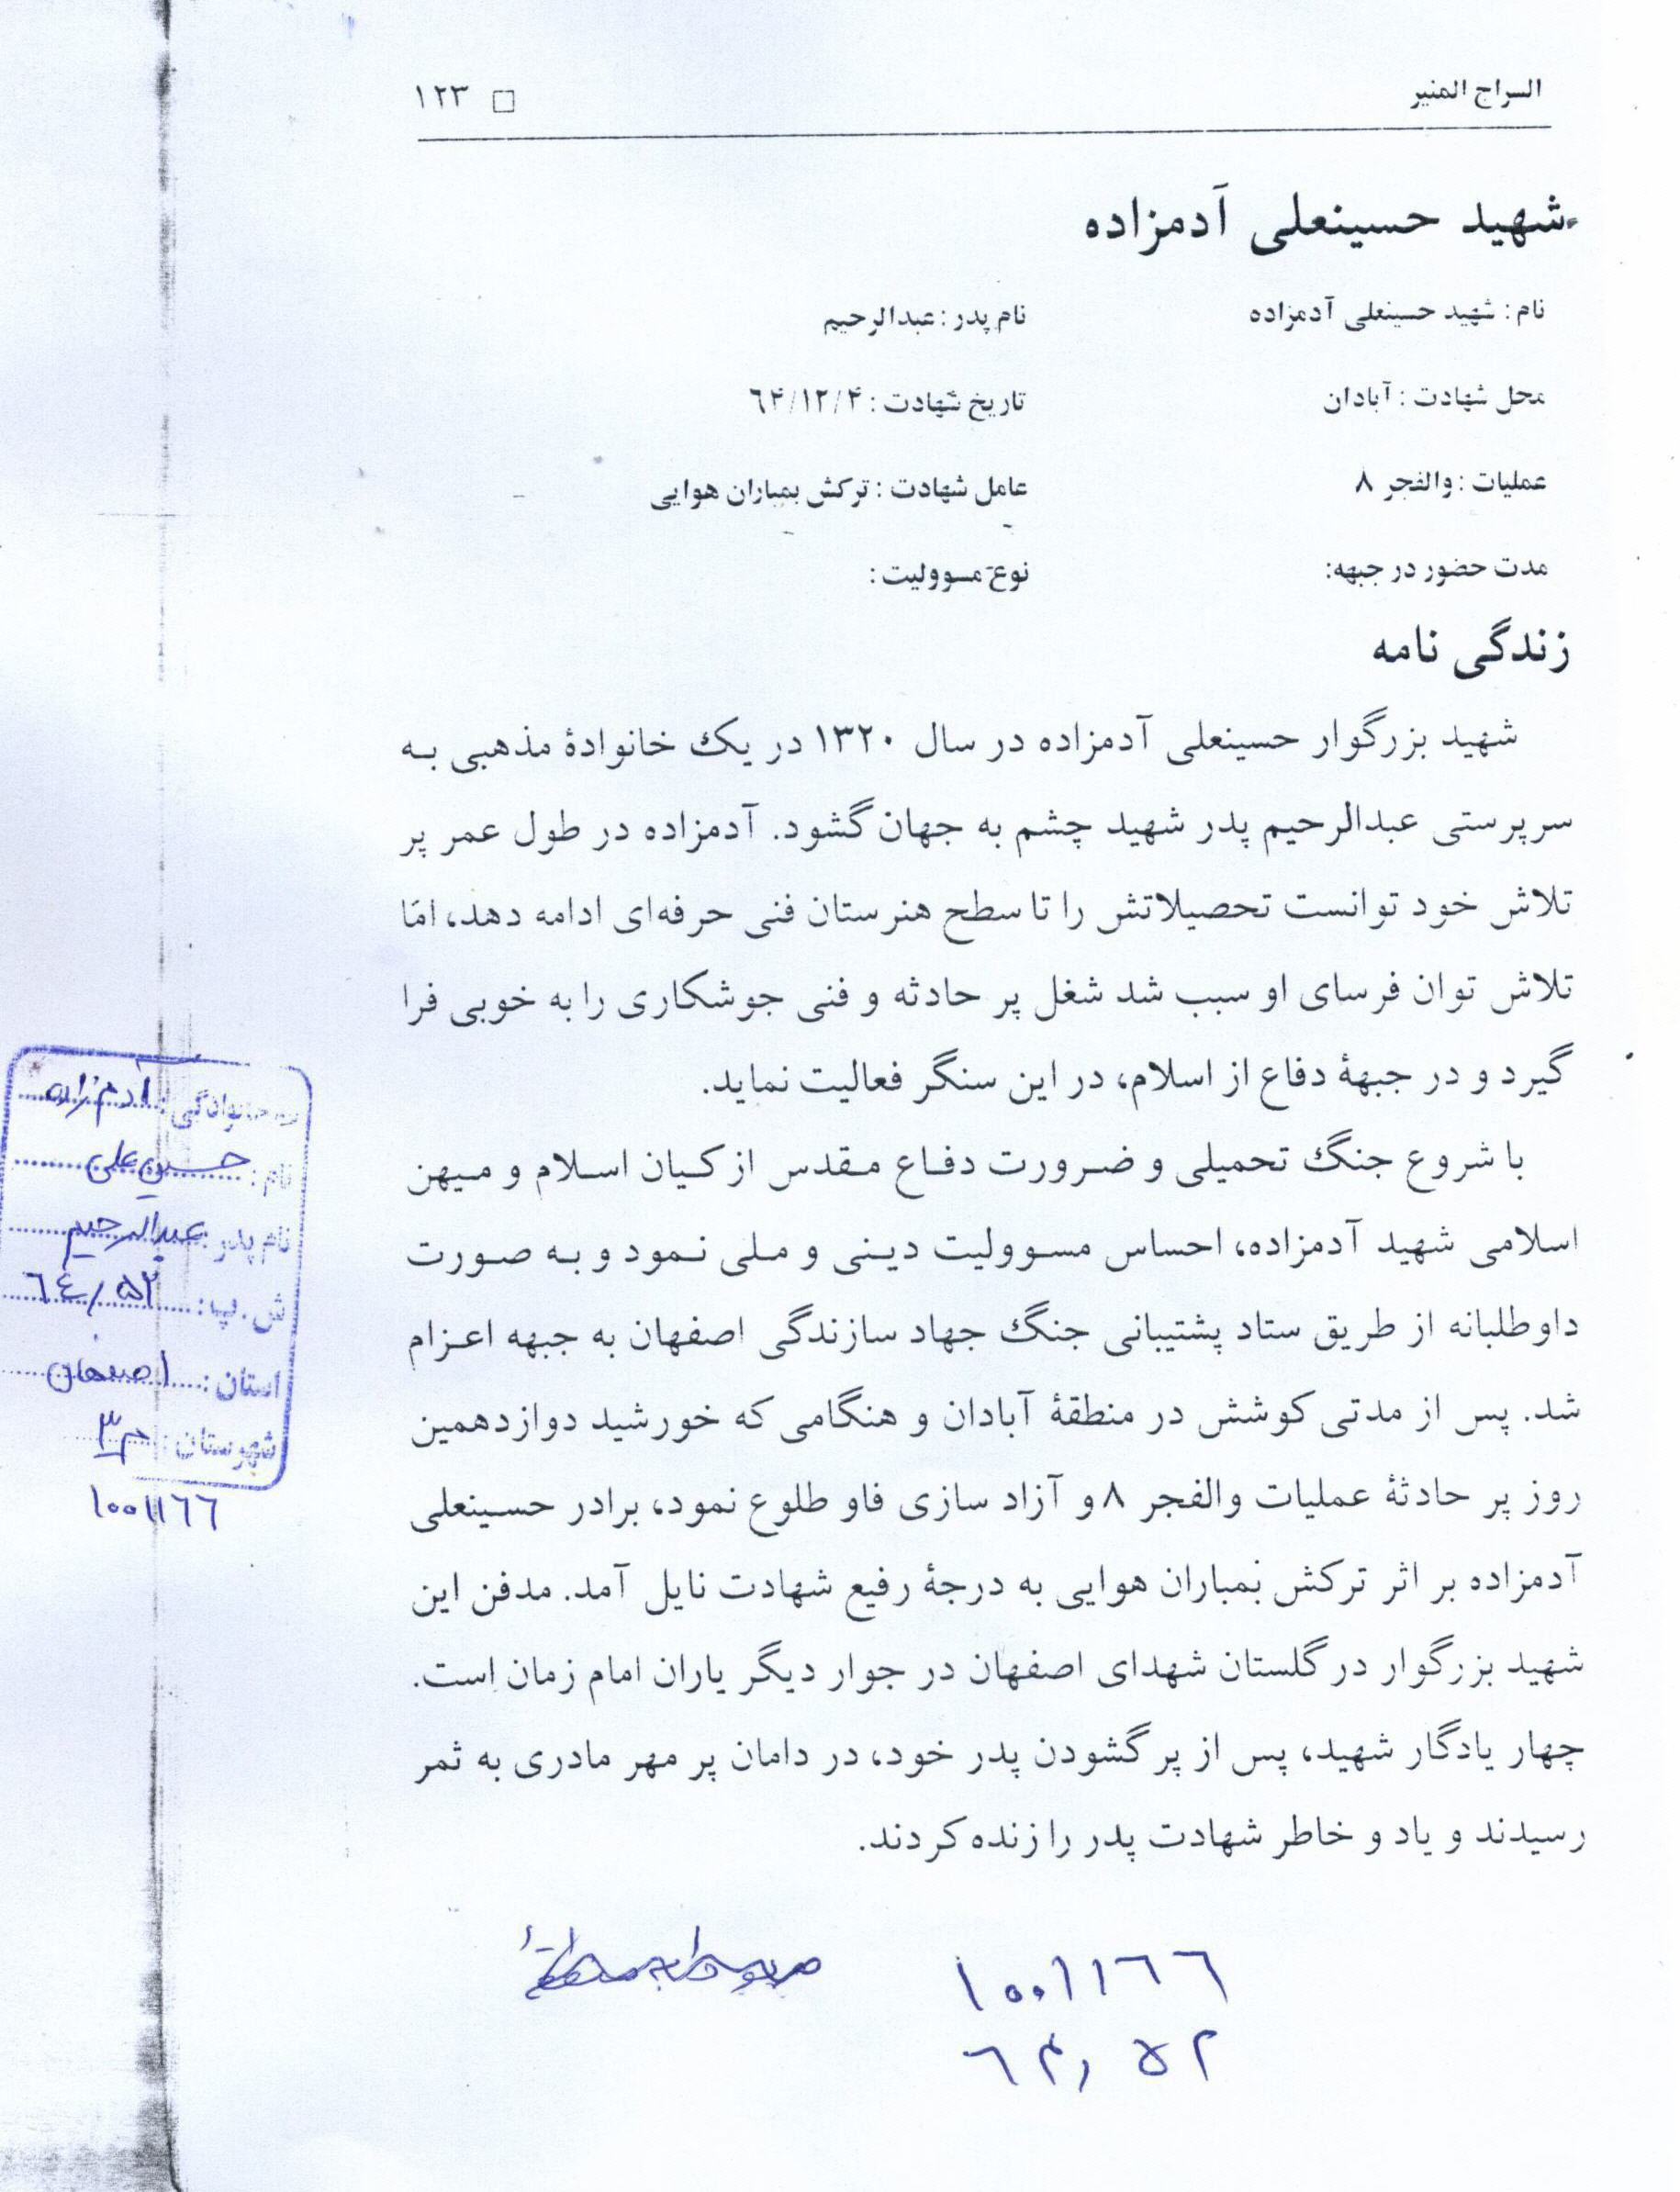 السراج المنیر □ ۱۲۳
شهید حسینعلی آدمزاده
نام : شهید حسینعلی آدمزاده نام پدر : عبدالرحیم
محل شهادت : آبادان تاریخ شهادت : ۶۴/۱۲/۴
عملیات : والفجر ۸ عامل شهادت : ترکش بمباران هوایی
مدت حضور در جبهه: نوع مسوولیت:
زندگی نامه
شهید بزرگوار حسینعلی آدمزاده در سال ۱۳۲۰ در یک خانوادهٔ مذهبی به
سرپرستی عبدالرحیم پدر شهید چشم به جهان گشود. آدمزاده در طول عمر پر
تلاش خود توانست تحصیلاتش را تا سطح هنرستان فنی حرفه‌ای ادامه دهد، امّا
تلاش توان فرسای او سبب شد شغل پر حادثه و فنی جوشکاری را به خوبی فرا
گیرد و در جبههٔ دفاع از اسلام، در این سنگر فعالیت نماید.
با شروع جنگ تحمیلی و ضرورت دفاع مقدس از کیان اسلام و میهن
اسلامی شهید آدمزاده، احساس مسوولیت دینی و ملی نمود و به صورت
داوطلبانه از طریق ستاد پشتیبانی جنگ جهاد سازندگی اصفهان به جبهه اعزام
شد. پس از مدتی کوشش در منطقهٔ آبادان و هنگامی که خورشید دوازدهمین
روز پر حادثهٔ عملیات والفجر ۸ و آزاد سازی فاو طلوع نمود، برادر حسینعلی
آدمزاده بر اثر ترکش بمباران هوایی به درجهٔ رفیع شهادت نایل آمد. مدفن این
شهید بزرگوار در گلستان شهدای اصفهان در جوار دیگر یاران امام زمان است.
چهار یادگار شهید، پس از پر گشودن پدر خود، در دامان پر مهر مادری به ثمر
رسیدند و یاد و خاطر شهادت پدر را زنده کردند.
۱۰۰۱۱۶۶
۶۴ر۵۲
خانوادگی: آدم زاده
نام: حسین علی
نام پدر: عبدالرحیم
ش.پ: ۶۴/۵۲
استان: اصفهان
شهرستان: م۳
۱۰۰۱۱۶۶